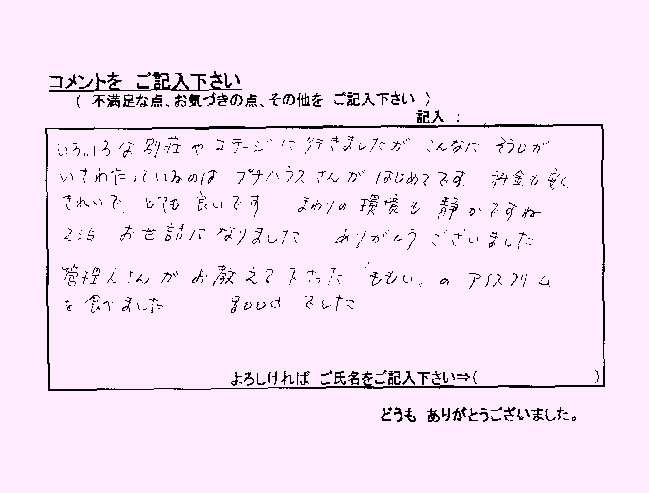 コメントを ご記入下さい
( 不満足な点、お気づきの点、その他を ご記入下さい )
記入 :
いろいろな別荘やコテージに行きましたが こんなに そうじが
いきわたっているのは プチハウスさんが はじめてです 料金も安く
きれいで とても良いです まわりの環境も 静かですね
2泊 お世話になりました ありがとうございました
管理人さんが お教えて下さった 「ももい」の アイスクリーム
を食べました goodでした
よろしければ ご氏名をご記入下さい⇒( )
どうも ありがとうございました。